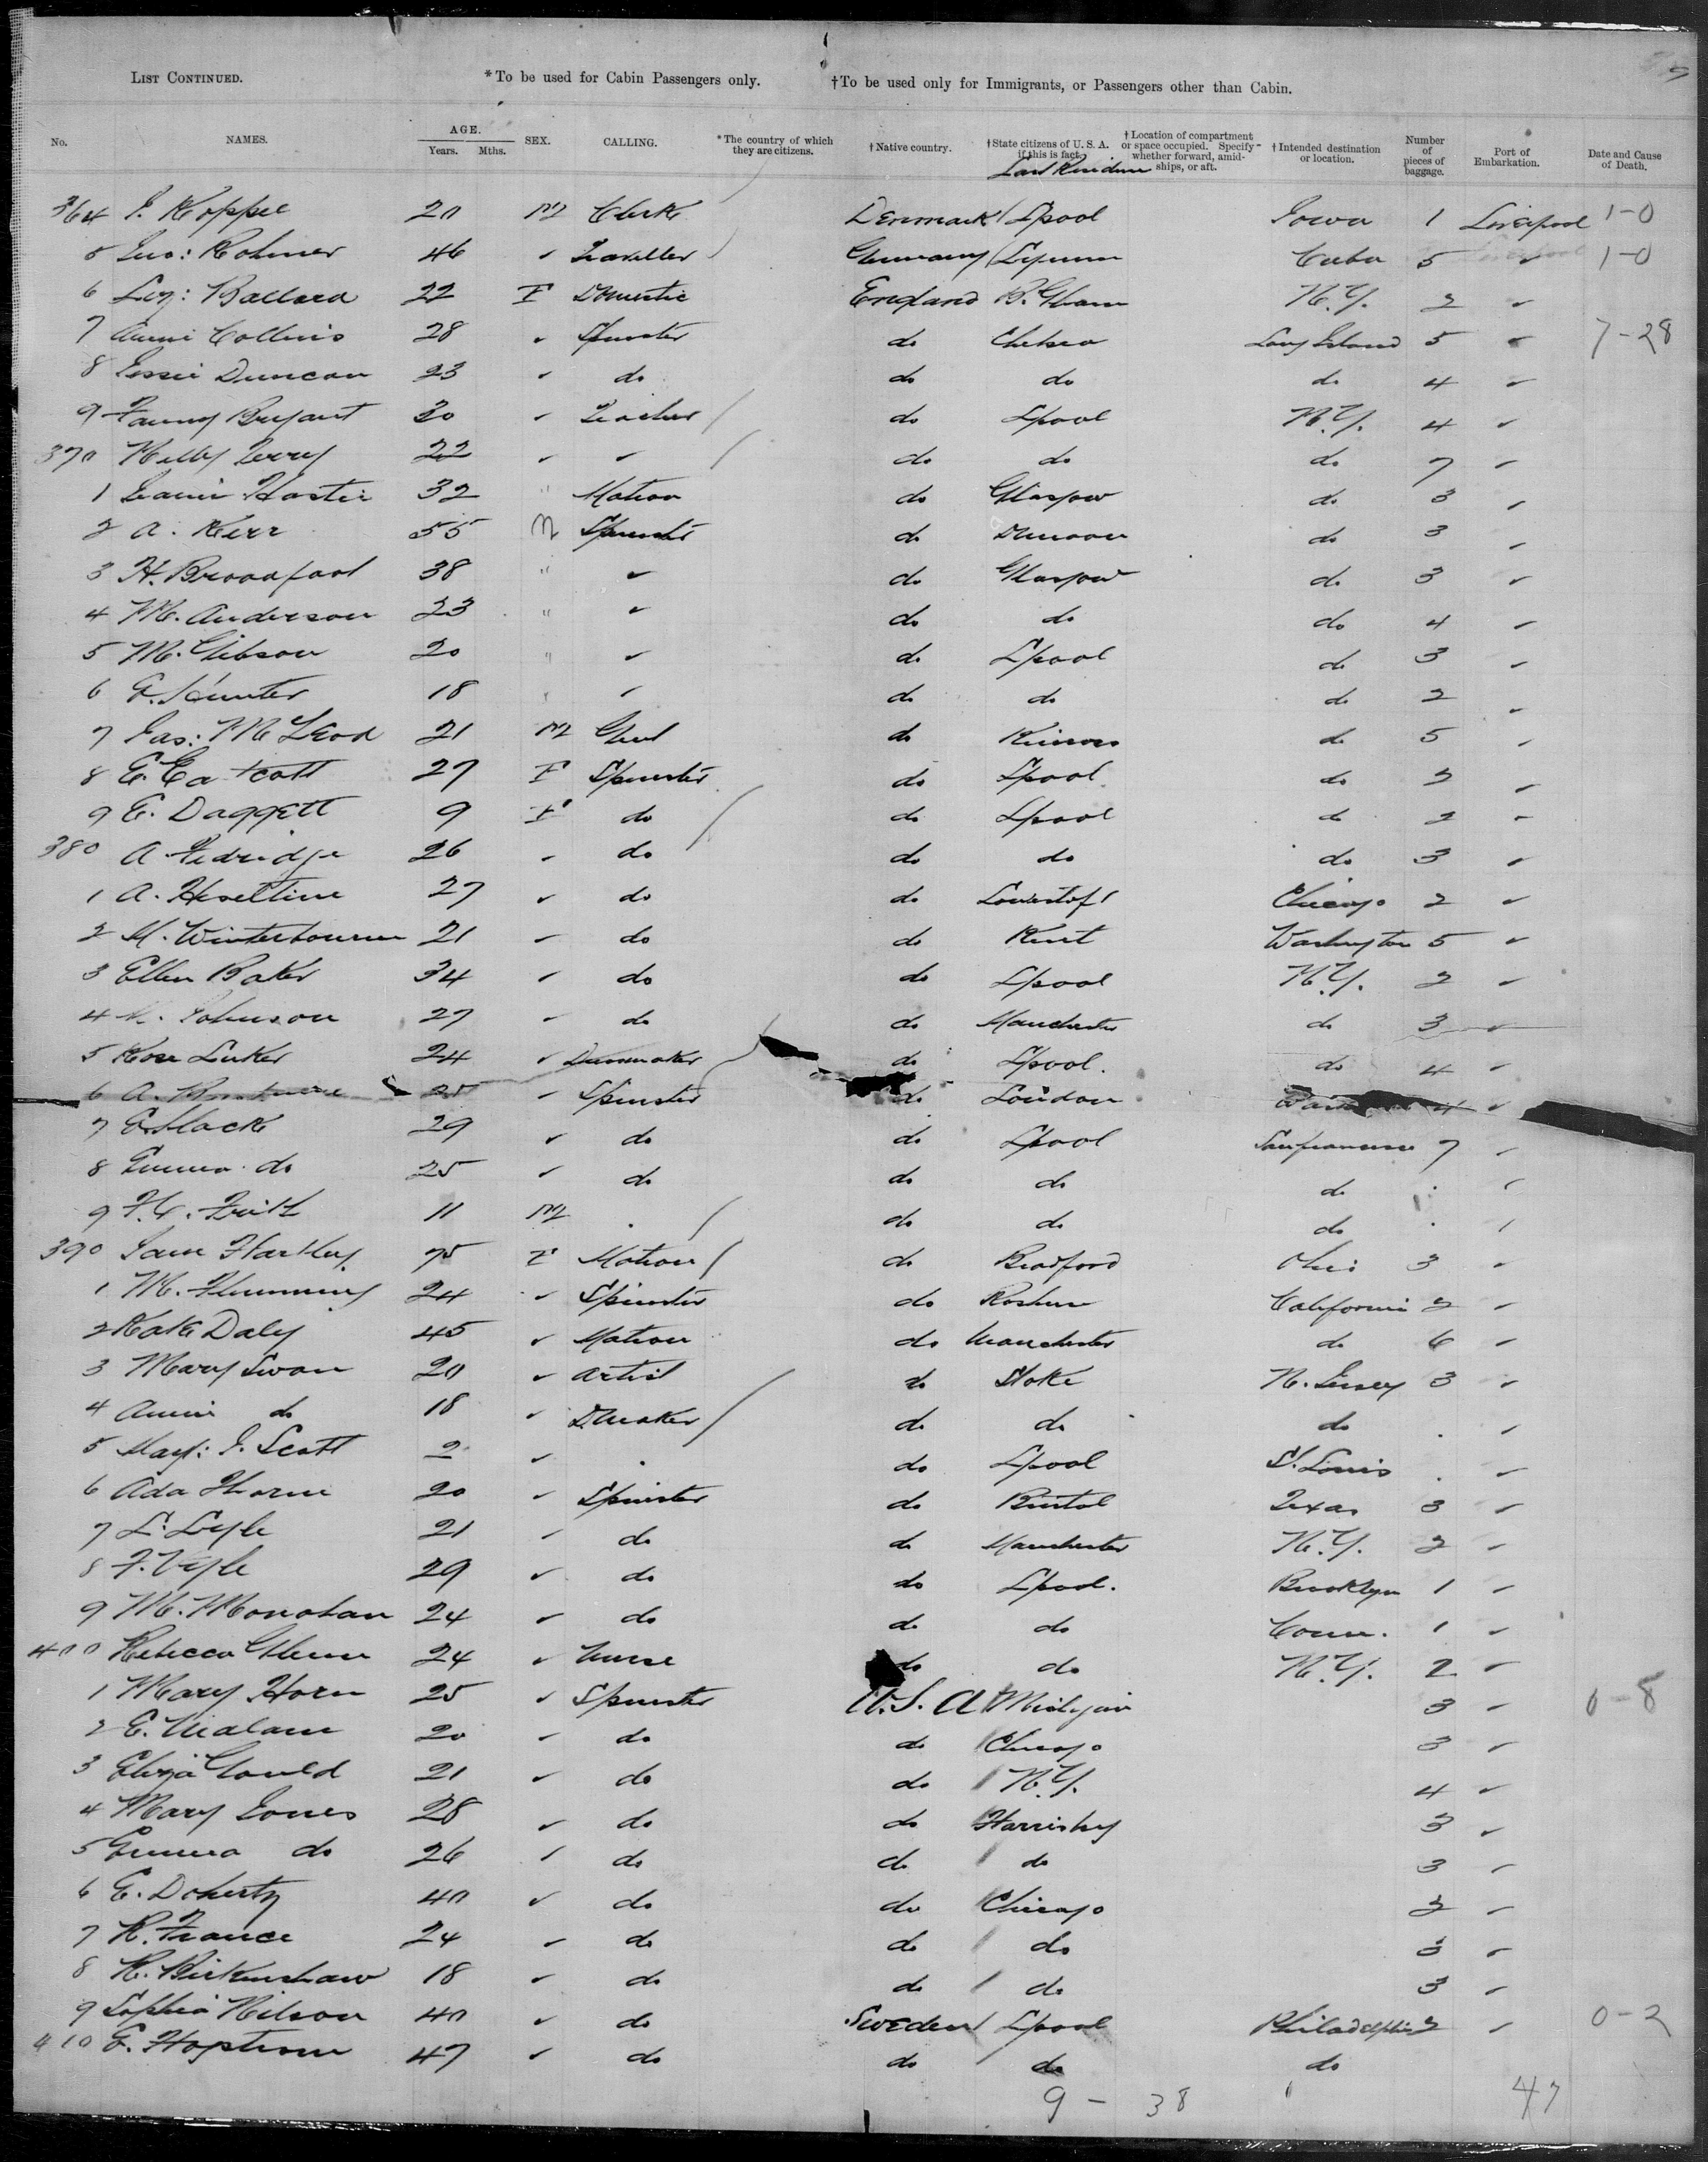 LIST CONTINUED. *To be used for Cabin Passengers only. †To be used only for Immigrants, or Passengers other than Cabin.
No. NAMES. AGE. Years. Mths. SEX. CALLING. *The country of which they are citizens. †Native country. †State citizens of U. S. A. if this is fact. Last Residence †Location of compartment or space occupied. Specify whether forward, amidships, or aft. †Intended destination or location. Number of pieces of baggage. Port of Embarkation. Date and Cause of Death.
364 J. Koppel 20 M Clerk Denmark L'pool Iowa 1 Liverpool 1-0
5 46 ✓ Traveller Germany Cuba 5 ✓ 1-0
6 Ballard 22 F Domestic England B. Gham N.Y. 2 ✓
7 Annie Collins 28 ✓ Spinster do Chelsea Long Island 5 ✓ 7-28
8 Jessie Duncan 23 ✓ do do do do 4 ✓
9 Fanny Bryant 30 ✓ Teacher do L'pool N.Y. 4 ✓
370 Nelly Terry 22 ✓ ✓ do do do 7 ✓
1 Hastie 32 " Matron do Glasgow do 3 ✓
2 A. Kerr 55 Spinster do Dunoon do 3 ✓
3 H. Broadfoot 38 " ✓ do Glasgow do 3 ✓
4 M. Anderson 23 " ✓ do do do 4 ✓
5 M. Gibson 20 " ✓ do L'pool do 3 ✓
6 E. Hunter 18 " ✓ do do do 2 ✓
7 Jas: McLeod 21 M Gent do Kinross do 5 ✓
8 E. Eastcott 27 F Spinster do L'pool do 2 ✓
9 E. Daggett 9 F do do L'pool do 2 ✓
380 A. 26 ✓ do do do do 3 ✓
1 A. Heseltine 27 ✓ do do Lowestoft Chicago 2 ✓
2 M. Winterbourne 21 ✓ do do Kent Washington 5 ✓
3 Ellen Baker 34 ✓ do do L'pool N.Y. 2 ✓
4 Johnson 27 ✓ do do Manchester do 3 ✓
5 Rose Luker 24 ✓ Dressmaker do L'pool. do 4 ✓
6 A. 25 ✓ Spinster do London 4 ✓
7 E. Slack 29 ✓ do do L'pool Sanfrancisco 7 ✓
8 Emma do 25 ✓ do do do do . ✓
9 F. C. Frith 11 M . do do do . ✓
390 Jane Hartley 75 F Matron do Bradford Ohio 3 ✓
1 M. Flemming 24 ✓ Spinster do California 2 ✓
2 Kate Daly 45 ✓ Matron do Manchester do 6 ✓
3 Mary Swan 20 ✓ Artist do Stoke N. Jersey 3 ✓
4 Annie do 18 ✓ D Maker do do do . ✓
5 Mary: J. Scott 2 ✓ . do L'pool St. Louis . ✓
6 Ada Thorne 20 ✓ Spinster do Bristol Texas 3 ✓
7 L. Lyle 21 ✓ do do Manchester N.Y. 2 ✓
8 F. 29 ✓ do do L'pool. Brooklyn 1 ✓
9 M. Monohan 24 ✓ do do do Conn. 1 ✓
400 Rebecca Glenn 24 ✓ Nurse do do N.Y. 2 ✓
1 Mary Horn 25 ✓ Spinster U.S.A Michigan 3 ✓ 0-8
2 E. 20 ✓ do do Chicago 3 ✓
3 Eliza Gould 21 ✓ do do N.Y. 4 ✓
4 Mary Jones 28 ✓ do do 3 ✓
5 Emma do 26 ✓ do do do 3 ✓
6 E. Doherty 40 ✓ do do Chicago 2 ✓
7 R. France 24 ✓ do do do 3 ✓
8 R. Birkenshaw 18 ✓ do do do 3 ✓
9 Sophia Nilson 40 ✓ do Sweden L'pool Philadelphia 2 ✓ 0-2
410 E. 47 ✓ do do do do
9 - 38 47